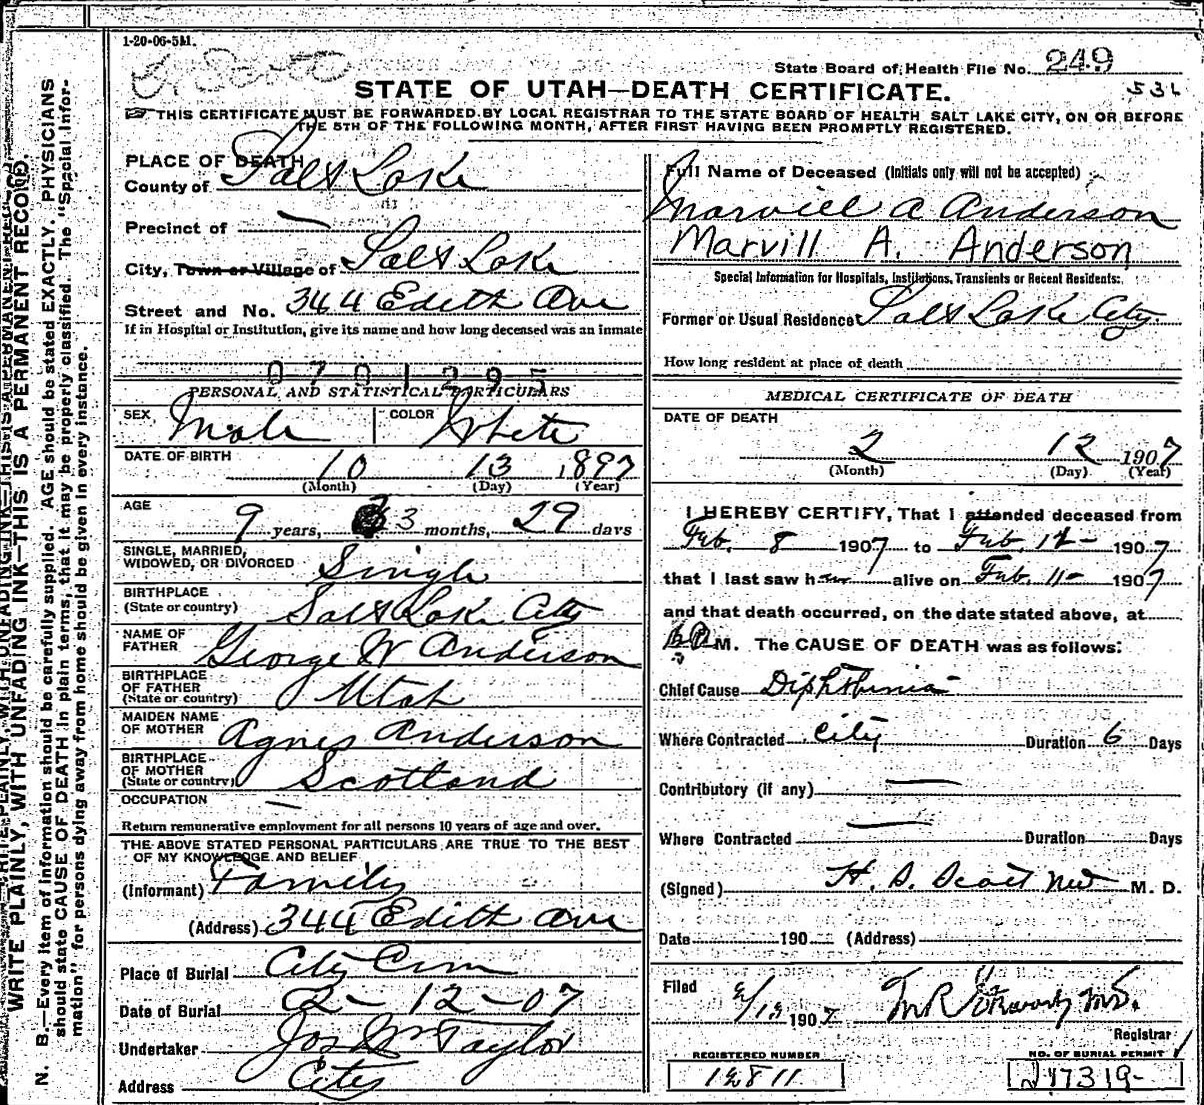 1-20-06-5M.
State Board of Health File No. 249
531
STATE OF UTAH—DEATH CERTIFICATE.
THIS CERTIFICATE MUST BE FORWARDED BY LOCAL REGISTRAR TO THE STATE BOARD OF HEALTH SALT LAKE CITY, ON OR BEFORE
THE 5TH OF THE FOLLOWING MONTH, AFTER FIRST HAVING BEEN PROMPTLY REGISTERED.
WRITE PLAINLY, WITH UNFADING INK—THIS IS A PERMANENT RECORD
N. B.—Every item of information should be carefully supplied. AGE should be stated EXACTLY. PHYSICIANS
should state CAUSE OF DEATH in plain terms, that it may be properly classified. The "Special Infor-
mation" for persons dying away from home should be given in every instance.
PLACE OF DEATH
County of Salt Lake
Precinct of —
City, Town or Village of Salt Lake
Street and No. 344 Edith Ave
If in Hospital or Institution, give its name and how long deceased was an inmate
0701295
PERSONAL AND STATISTICAL PARTICULARS
SEX Male COLOR White
DATE OF BIRTH
10 13 1897
(Month) (Day) (Year)
AGE
9 years, 3 months, 29 days
SINGLE, MARRIED,
WIDOWED, OR DIVORCED Single
BIRTHPLACE
(State or country) Salt Lake City
NAME OF
FATHER George W Anderson
BIRTHPLACE
OF FATHER
(State or country) Utah
MAIDEN NAME
OF MOTHER Agnes Anderson
BIRTHPLACE
OF MOTHER
(State or country) Scotland
OCCUPATION —
Return remunerative employment for all persons 10 years of age and over.
THE ABOVE STATED PERSONAL PARTICULARS ARE TRUE TO THE BEST
OF MY KNOWLEDGE AND BELIEF
(Informant) Family
(Address) 344 Edith Ave
Place of Burial City Cem
Date of Burial 2-12-07
Undertaker Jos Wm Taylor
Address City
Full Name of Deceased (Initials only will not be accepted)
Marvill A Anderson
Marvill A. Anderson
Special Information for Hospitals, Institutions, Transients or Recent Residents:
Former or Usual Residence Salt Lake City.
How long resident at place of death
MEDICAL CERTIFICATE OF DEATH
DATE OF DEATH
2 12 1907
(Month) (Day) (Year)
I HEREBY CERTIFY, That I attended deceased from
Feb. 8 1907 to Feb. 12- 1907
that I last saw h alive on Feb. 11- 1907
and that death occurred, on the date stated above, at
M. The CAUSE OF DEATH was as follows:
Chief Cause Diphtheria
Where Contracted City Duration 6 Days
Contributory (if any) —
Where Contracted — Duration Days
(Signed) H. S. Scott M. D.
Date 190 (Address)
Filed 2/13 1907 M.D.
Registrar
REGISTERED NUMBER
NO. OF BURIAL PERMIT